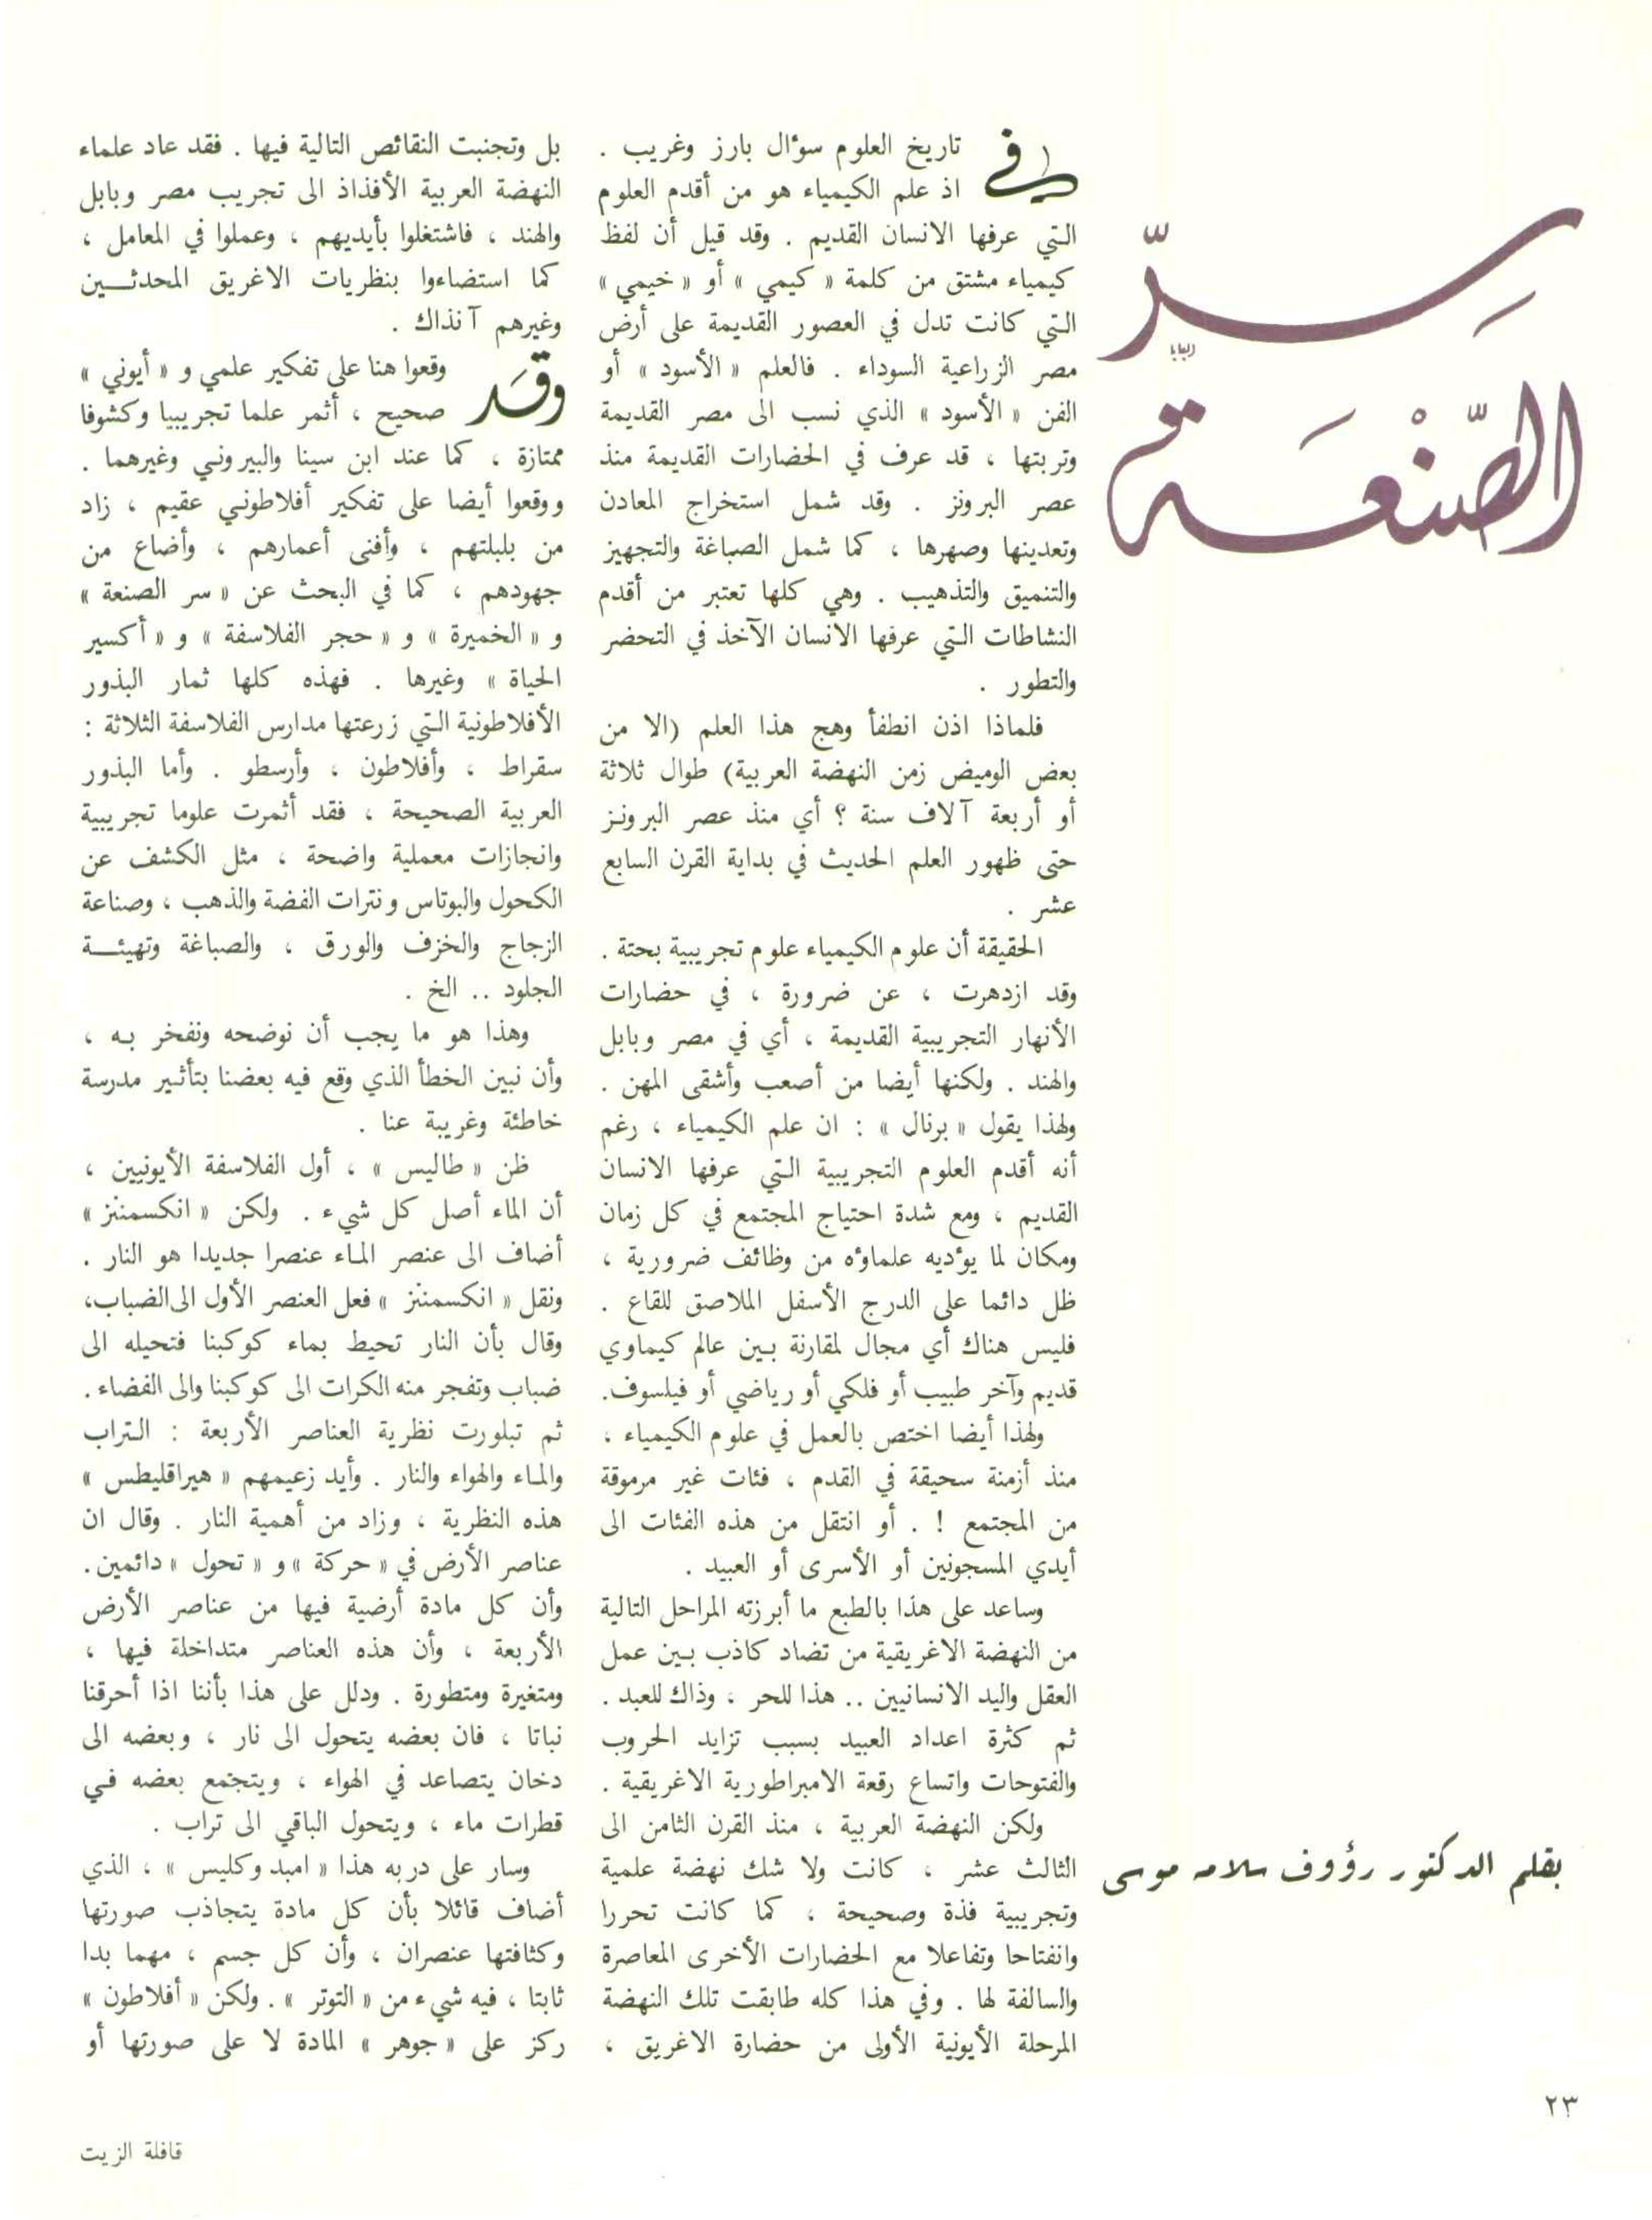 سِرّ
الصّنْعَة
بقلم الدكتور رؤوف سلامه موسى
في تاريخ العلوم سؤال بارز وغريب .
اذ علم الكيمياء هو من أقدم العلوم
التي عرفها الانسان القديم . وقد قيل أن لفظ
كيمياء مشتق من كلمة « كيمي » أو « خيمي »
التي كانت تدل في العصور القديمة على أرض
مصر الزراعية السوداء . فالعلم « الأسود » أو
الفن « الأسود » الذي نسب الى مصر القديمة
وتربتها ، قد عرف في الحضارات القديمة منذ
عصر البرونز . وقد شمل استخراج المعادن
وتعدينها وصهرها ، كما شمل الصباغة والتجهيز
والتنميق والتذهيب . وهي كلها تعتبر من أقدم
النشاطات التي عرفها الانسان الآخذ في التحضر
والتطور .
فلماذا اذن انطفأ وهج هذا العلم (الا من
بعض الوميض زمن النهضة العربية) طوال ثلاثة
أو أربعة آلاف سنة ؟ أي منذ عصر البرونز
حتى ظهور العلم الحديث في بداية القرن السابع
عشر .
الحقيقة أن علوم الكيمياء علوم تجريبية بحتة .
وقد ازدهرت ، عن ضرورة ، في حضارات
الأنهار التجريبية القديمة ، أي في مصر وبابل
والهند . ولكنها أيضا من أصعب وأشقى المهن .
ولهذا يقول « برنال » : ان علم الكيمياء ، رغم
أنه أقدم العلوم التجريبية التي عرفها الانسان
القديم ، ومع شدة احتياج المجتمع في كل زمان
ومكان لما يؤديه علماؤه من وظائف ضرورية ،
ظل دائما على الدرج الأسفل الملاصق للقاع .
فليس هناك أي مجال لمقارنة بين عالم كيماوي
قديم وآخر طبيب أو فلكي أو رياضي أو فيلسوف.
ولهذا أيضا اختص بالعمل في علوم الكيمياء ،
منذ أزمنة سحيقة في القدم ، فئات غير مرموقة
من المجتمع ! . أو انتقل من هذه الفئات الى
أيدي المسجونين أو الأسرى أو العبيد .
وساعد على هذا بالطبع ما أبرزته المراحل التالية
من النهضة الاغريقية من تضاد كاذب بين عمل
العقل واليد الانسانيين .. هذا للحر ، وذاك للعبد .
ثم كثرة اعداد العبيد بسبب تزايد الحروب
والفتوحات واتساع رقعة الامبراطورية الاغريقية .
ولكن النهضة العربية ، منذ القرن الثامن الى
الثالث عشر ، كانت ولا شك نهضة علمية
وتجريبية فذة وصحيحة ، كما كانت تحررا
وانفتاحا وتفاعلا مع الحضارات الأخرى المعاصرة
والسالفة لها . وفي هذا كله طابقت تلك النهضة
المرحلة الأيونية الأولى من حضارة الاغريق ،
بل وتجنبت النقائص التالية فيها . فقد عاد علماء
النهضة العربية الأفذاذ الى تجريب مصر وبابل
والهند ، فاشتغلوا بأيديهم ، وعملوا في المعامل ،
كما استضاءوا بنظريات الاغريق المحدثين
وغيرهم آنذاك .
وقَد وقعوا هنا على تفكير علمي و « أيوني »
صحيح ، أثمر علما تجريبيا وكشوفا
ممتازة ، كما عند ابن سينا والبيروني وغيرهما .
ووقعوا أيضا على تفكير أفلاطوني عقيم ، زاد
من بلبلتهم ، وأفنى أعمارهم ، وأضاع من
جهودهم ، كما في البحث عن « سر الصنعة »
و « الخميرة » و « حجر الفلاسفة » و « أكسير
الحياة » وغيرها . فهذه كلها ثمار البذور
الأفلاطونية التي زرعتها مدارس الفلاسفة الثلاثة :
سقراط ، وأفلاطون ، وأرسطو . وأما البذور
العربية الصحيحة ، فقد أثمرت علوما تجريبية
وانجازات معملية واضحة ، مثل الكشف عن
الكحول والبوتاس ونترات الفضة والذهب ، وصناعة
الزجاج والخزف والورق ، والصباغة وتهيئة
الجلود .. الخ .
وهذا هو ما يجب أن نوضحه ونفخر به ،
وأن نبين الخطأ الذي وقع فيه بعضنا بتأثير مدرسة
خاطئة وغريبة عنا .
ظن « طاليس » ، أول الفلاسفة الأيونيين ،
أن الماء أصل كل شيء . ولكن « انكسمننز »
أضاف الى عنصر الماء عنصرا جديدا هو النار .
ونقل « انكسمننز » فعل العنصر الأول الى الضباب،
وقال بأن النار تحيط بماء كوكبنا فتحيله الى
ضباب وتفجر منه الكرات الى كوكبنا والى الفضاء .
ثم تبلورت نظرية العناصر الأربعة : التراب
والماء والهواء والنار . وأيد زعيمهم « هيراقليطس »
هذه النظرية ، وزاد من أهمية النار . وقال ان
عناصر الأرض في « حركة » و « تحول » دائمين.
وأن كل مادة أرضية فيها من عناصر الأرض
الأربعة ، وأن هذه العناصر متداخلة فيها ،
ومتغيرة ومتطورة . ودلل على هذا بأننا اذا أحرقنا
نباتا ، فان بعضه يتحول الى نار ، وبعضه الى
دخان يتصاعد في الهواء ، ويتجمع بعضه في
قطرات ماء ، ويتحول الباقي الى تراب .
وسار على دربه هذا « امبدوكليس » ، الذي
أضاف قائلا بأن كل مادة يتجاذب صورتها
وكثافتها عنصران ، وأن كل جسم ، مهما بدا
ثابتا ، فيه شيء من « التوتر » . ولكن « أفلاطون »
ركز على « جوهر » المادة لا على صورتها أو
٢٣
قافلة الزيت